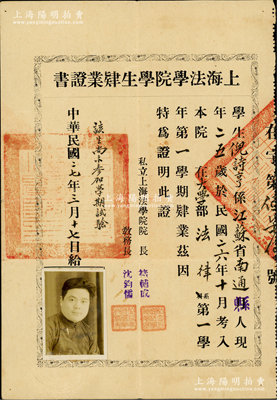 上海陽明拍賣
上海法學院學生肄業證書
學生倪詩亨係江蘇省南通縣人現
年二五歲於民國二六年十月考入
本院大學部法律系第一學
年第一學期肄業茲因
特給證明此證
私立上海法學院院長
教務長沈鈞儒
該生尚未參加學期試驗
中華民國二七年三月十七日給
號
上海陽明拍賣